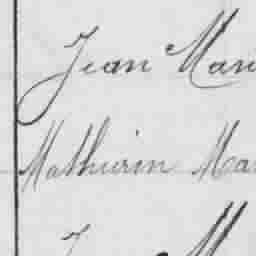 Jean Mari
Mathurin Mar